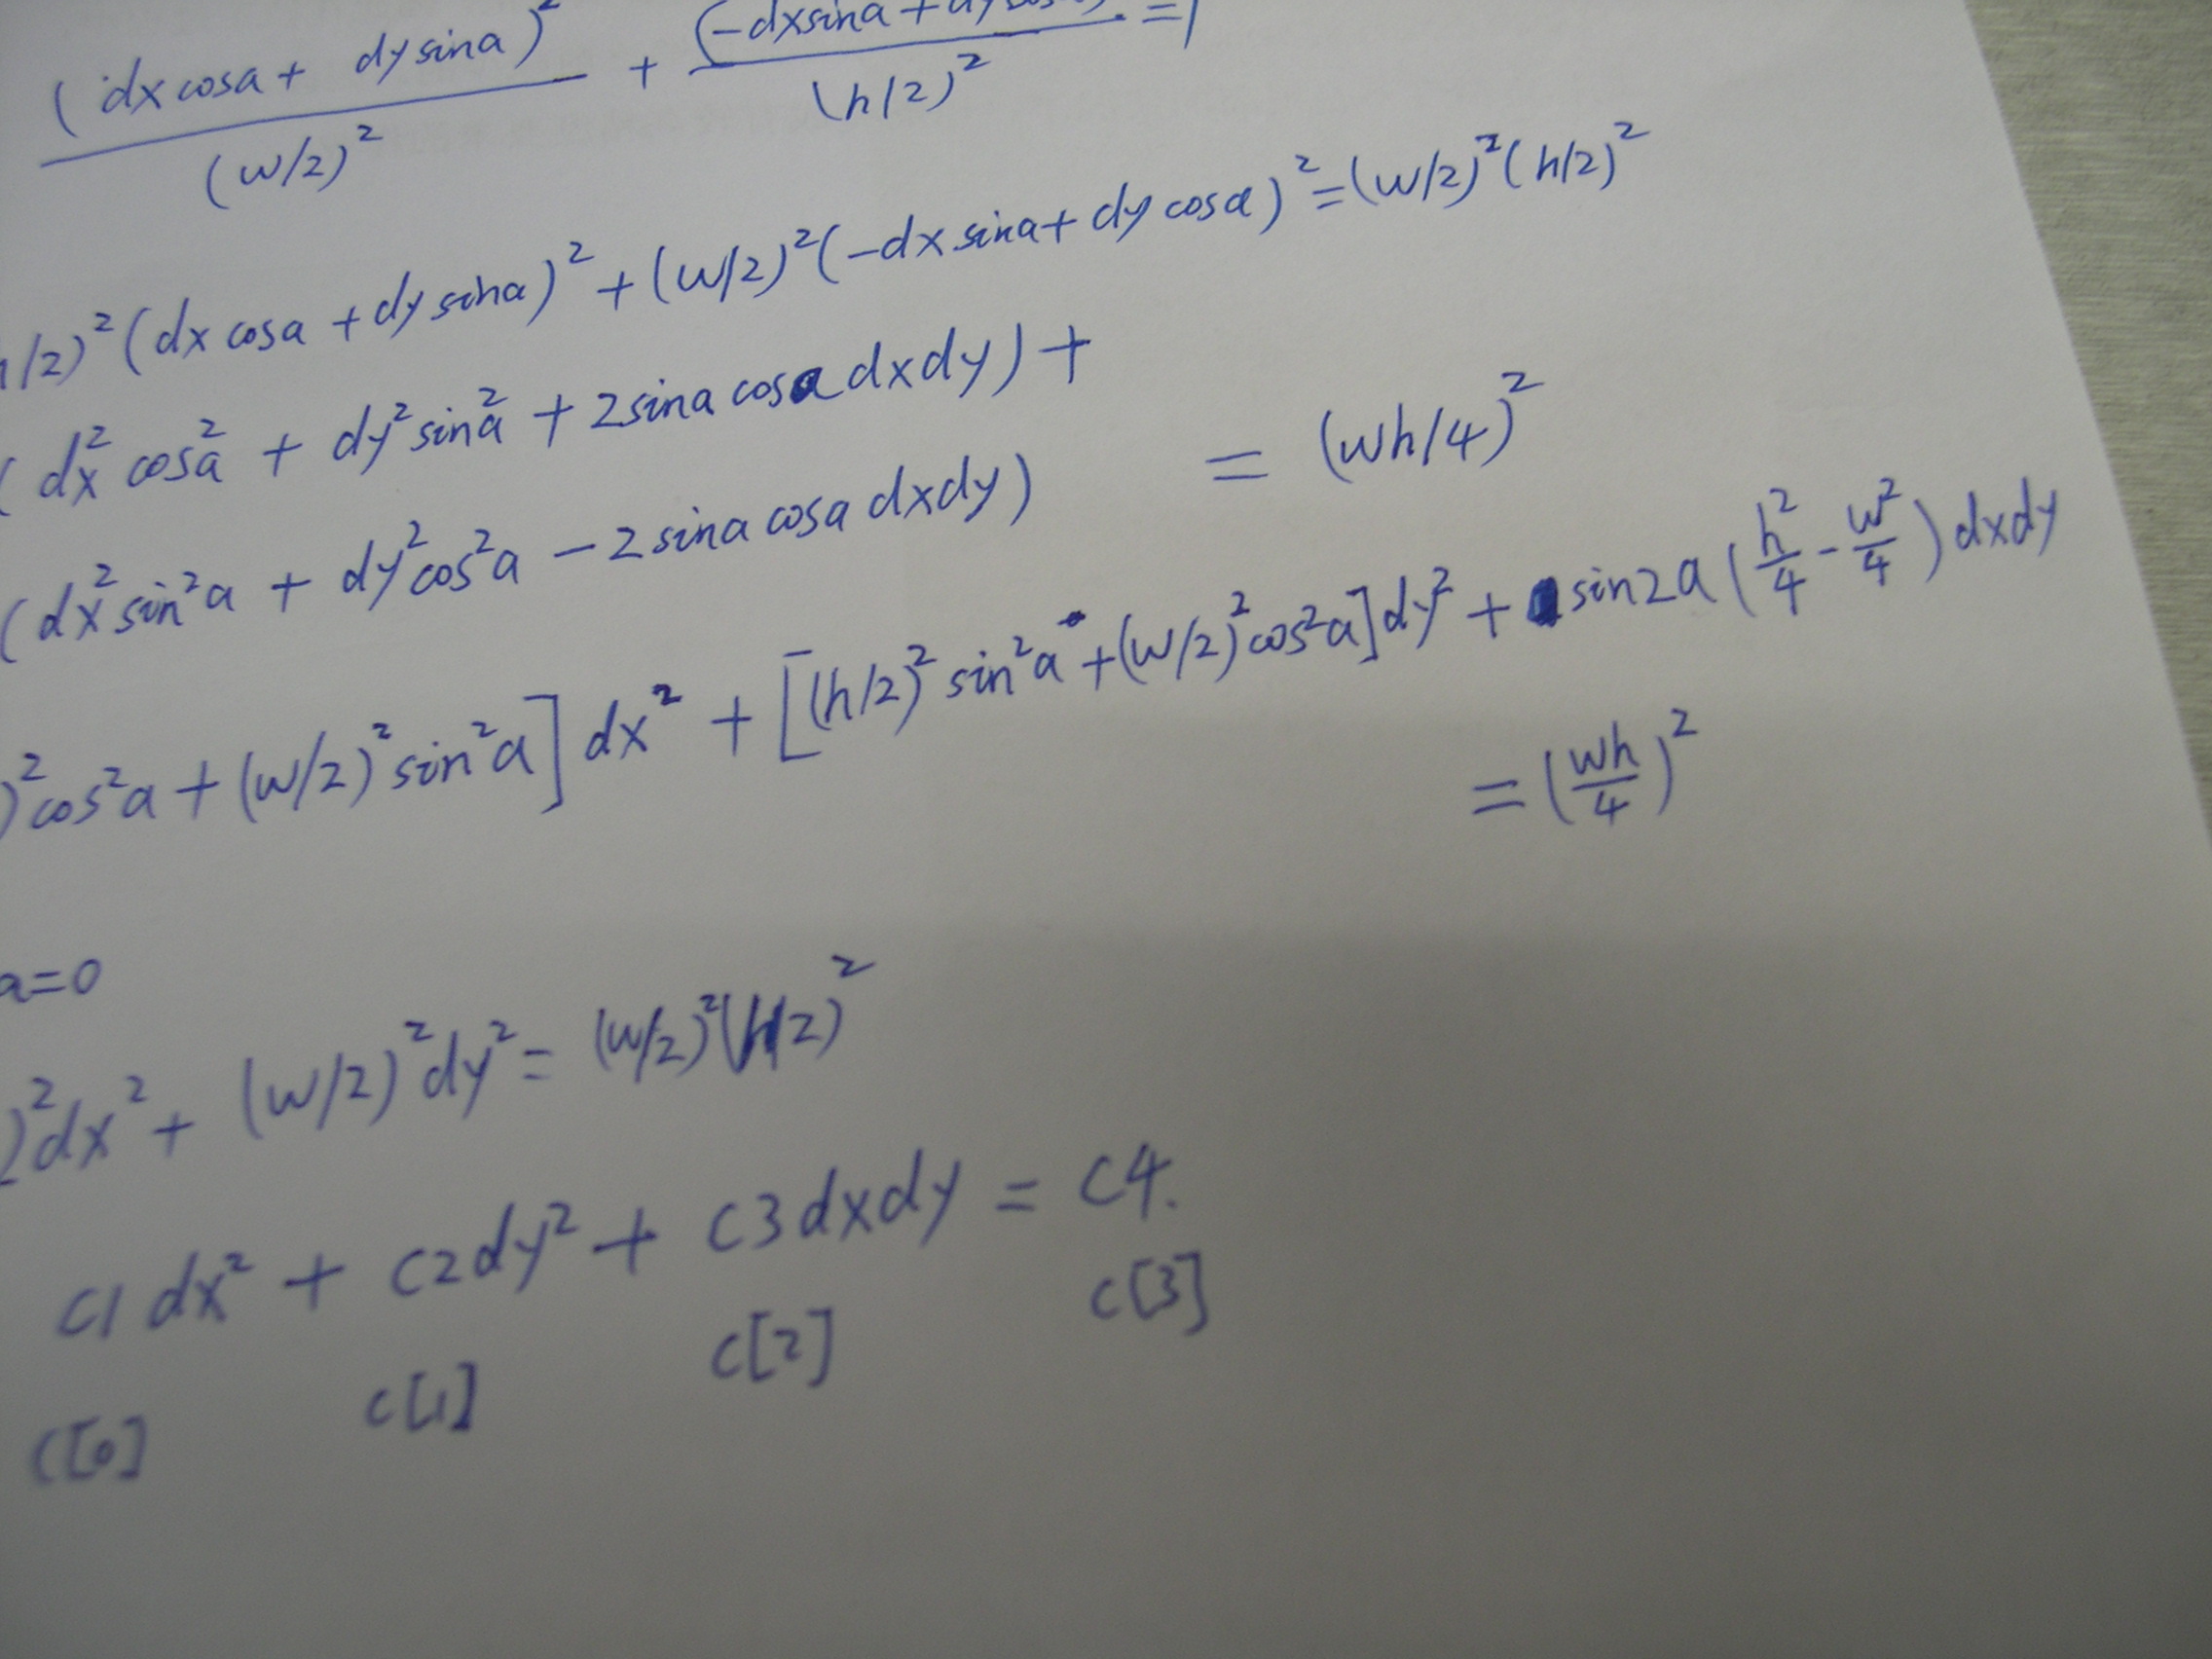 (dx cosa + dy sina)² / (w/2)² + (-dx sina + dy / (h/2)² = 1
/2)² (dx cosa + dy sina)² + (w/2)² (-dx sina + dy cosa)² = (w/2)² (h/2)²
(dx² cos²a + dy² sin²a + 2 sina cosa dxdy) +
= (wh/4)²
(dx² sin²a + dy² cos²a - 2 sina cosa dxdy)
)² cos²a + (w/2)² sin²a] dx² + [(h/2)² sin²a + (w/2)² cos²a] dy² + sin2a (h²/4 - w²/4) dxdy
= (wh/4)²
a=0
)² dx² + (w/2)² dy² = (w/2)² (h/2)²
c1 dx² + c2 dy² + c3 dxdy = c4.
c[0] c[1] c[2] c[3]